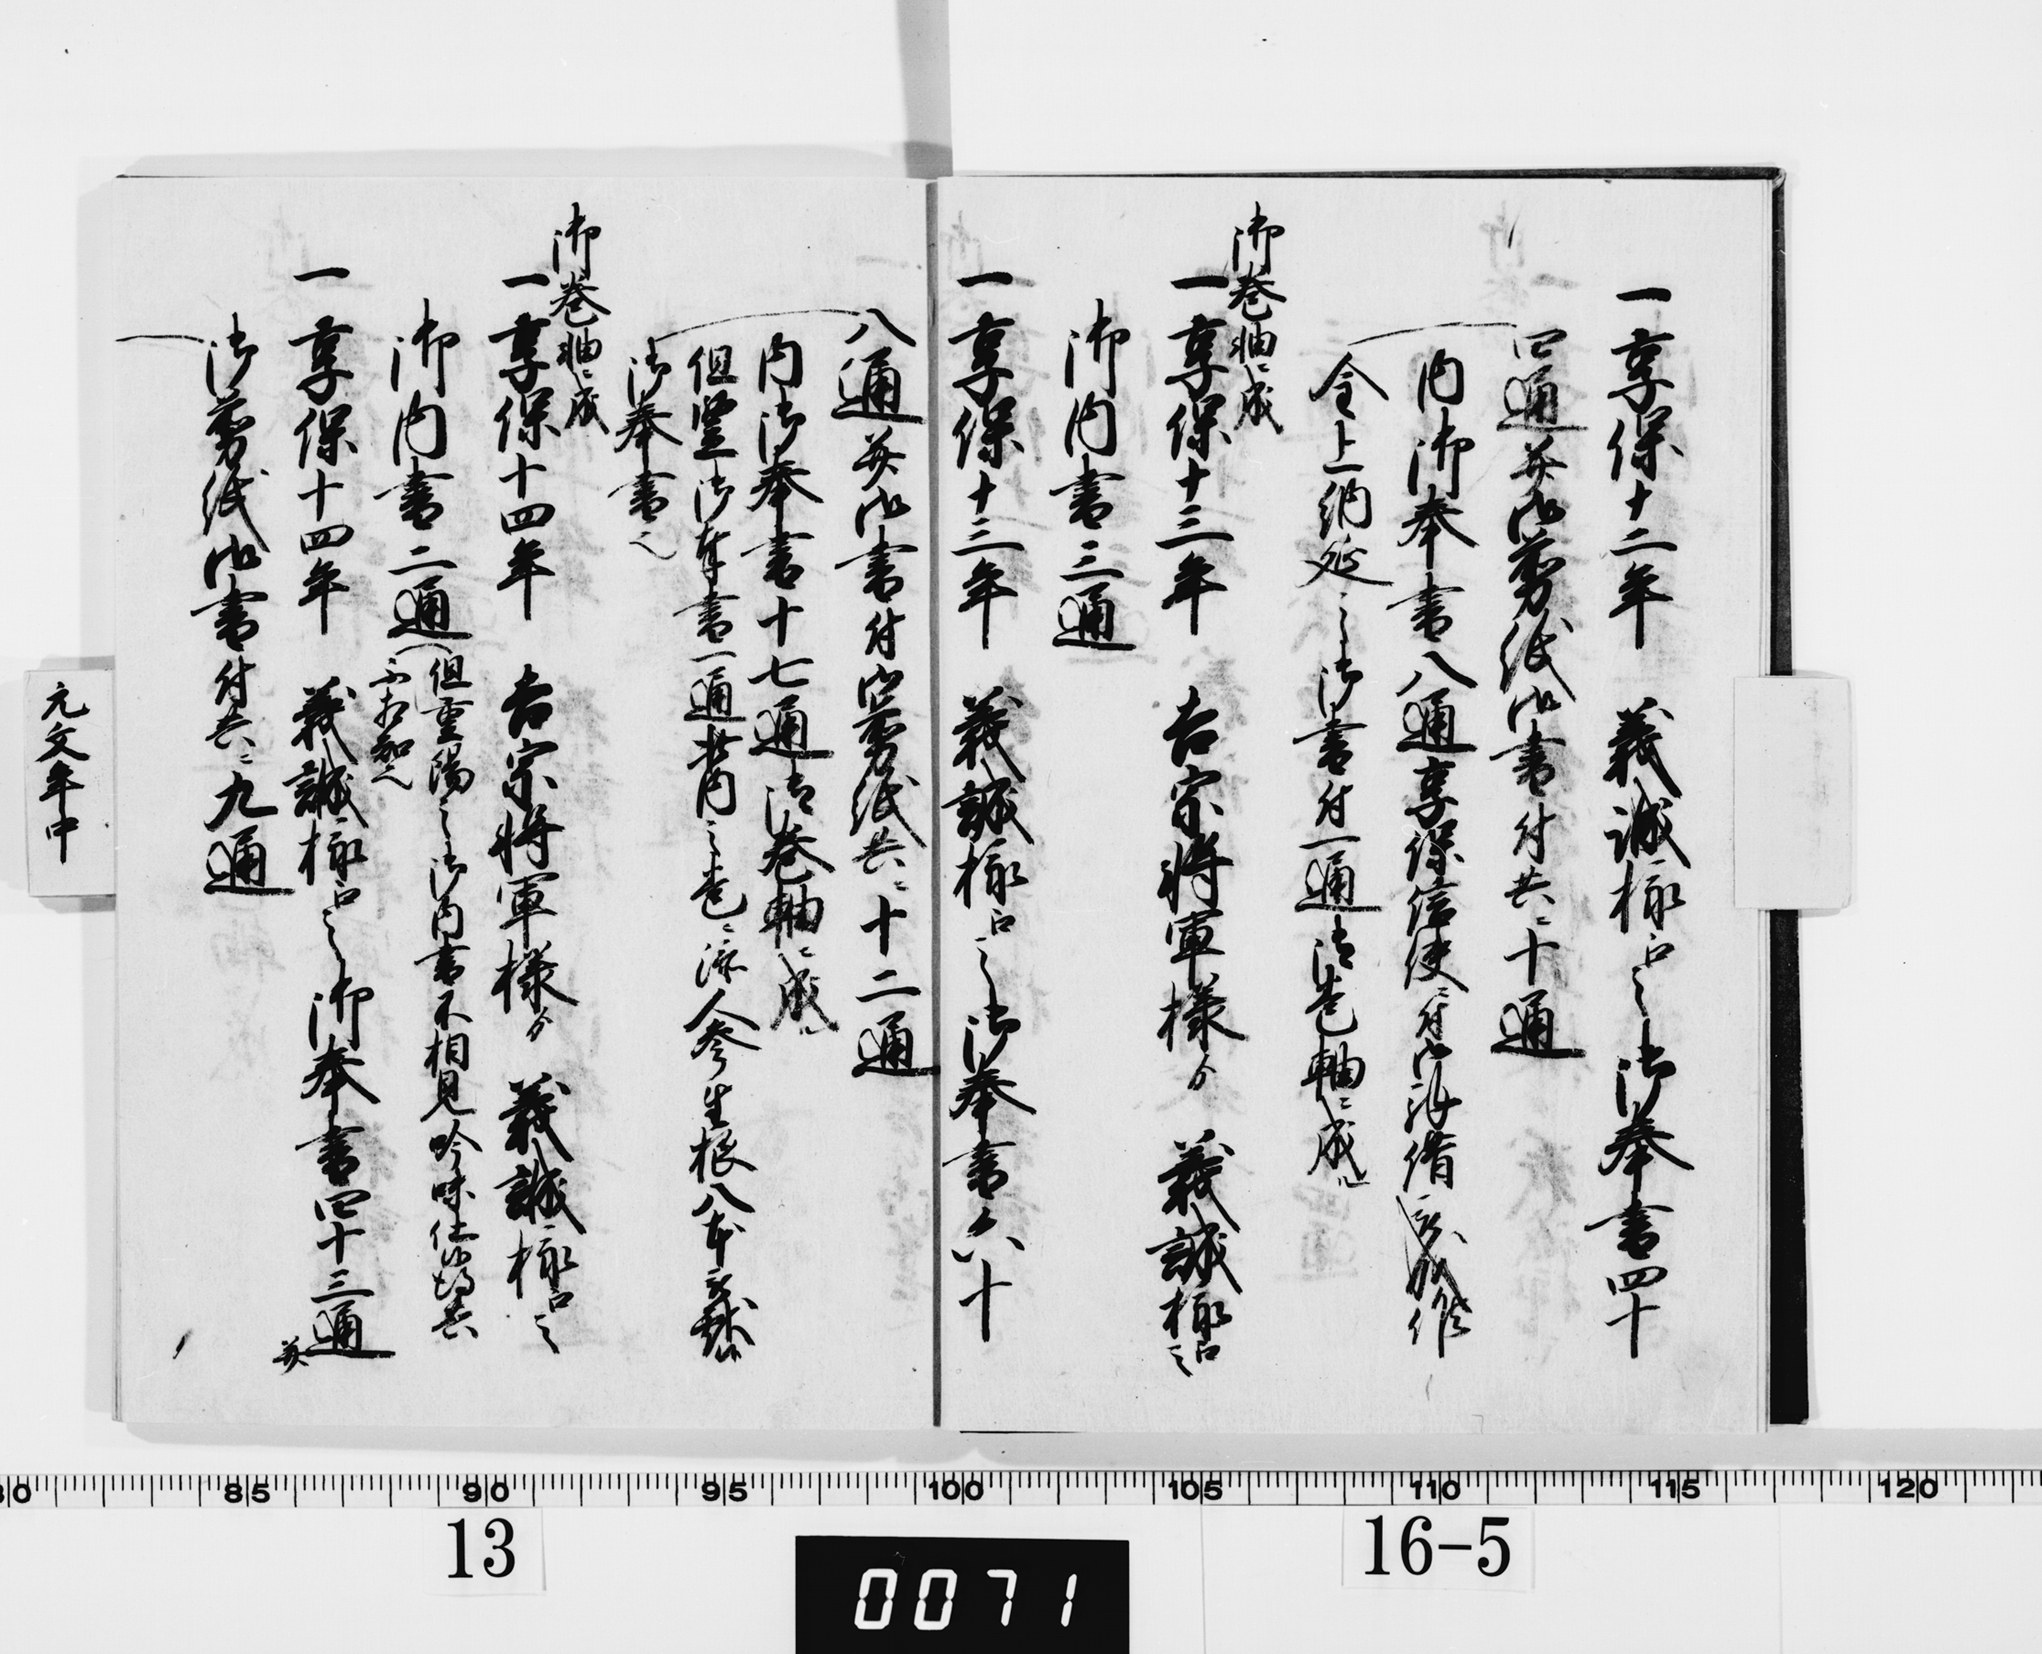 一享保十二年　義誠様江之御奉書四十
四通并御剪紙御書付共ニ十通
内御奉書八通享保信使ニ付御拝借
金上納延之御書付一通御巻軸ニ成ル
御巻軸ニ成
一享保十三年　吉宗将軍様ゟ　義誠様江之
御内書三通
一享保十三年　義誠様江之御奉書六十
八通并御書付御剪紙共ニ十二通
内御奉書十七通御巻軸ニ成ル
但竪御奉書一通此内之巻ニ添人参生根八本
御奉書也
御巻軸ニ成
一享保十四年　吉宗将軍様ゟ　義誠様江之
御内書二通
但重陽之御内書不相見吟味仕候得共
不相知
一享保十四年　義誠様江之御奉書四十三通并
御剪紙御書付共ニ九通
元文年中
80 85 90 95 100 105 110 115 120
13
16-5
0071